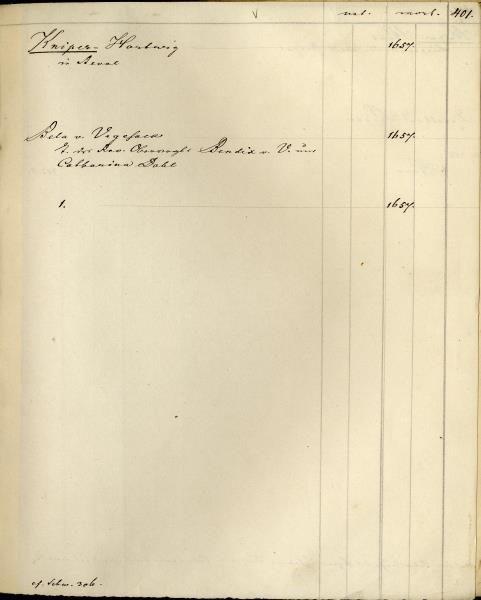 V nat. mort. 401.
Kniper - Hartwig 1657.
in Reval
Bela v. Vegesack 1657.
T. des Rev. Obervogts Bendix v. V. und
Catharina Dahl
1. 1657.
cf. Schw. 306.